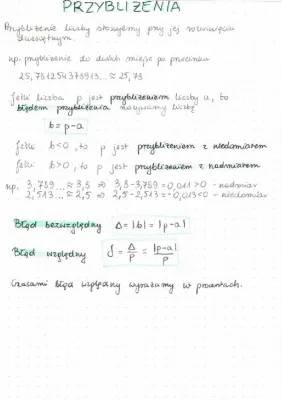 PRZYBLIŻENIA
Przybliżenie liczby stosujemy przy jej rozwinięciu
dziesiętnym.
np. przybliżenie do dwóch miejsc po przecinku
25,731254378913... ≈ 25,73
Jeśli liczba p jest przybliżeniem liczby a, to
błędem przybliżenia nazywamy liczbę
b = p - a
Jeśli b<0, to p jest przybliżeniem z niedomiarem
Jeśli b>0, to p jest przybliżeniem z nadmiarem
np. 3,789... ≈ 3,8 ⇒ 3,8-3,789 = 0,011>0 - nadmiar
2,513... ≈ 2,5 ⇒ 2,5-2,513 = -0,013<0 - niedomiar
Błąd bezwzględny Δ = |b| = |p-a|
Błąd względny δ = Δ/p = |p-a|/p
Czasami błąd względny wyrażamy w procentach.